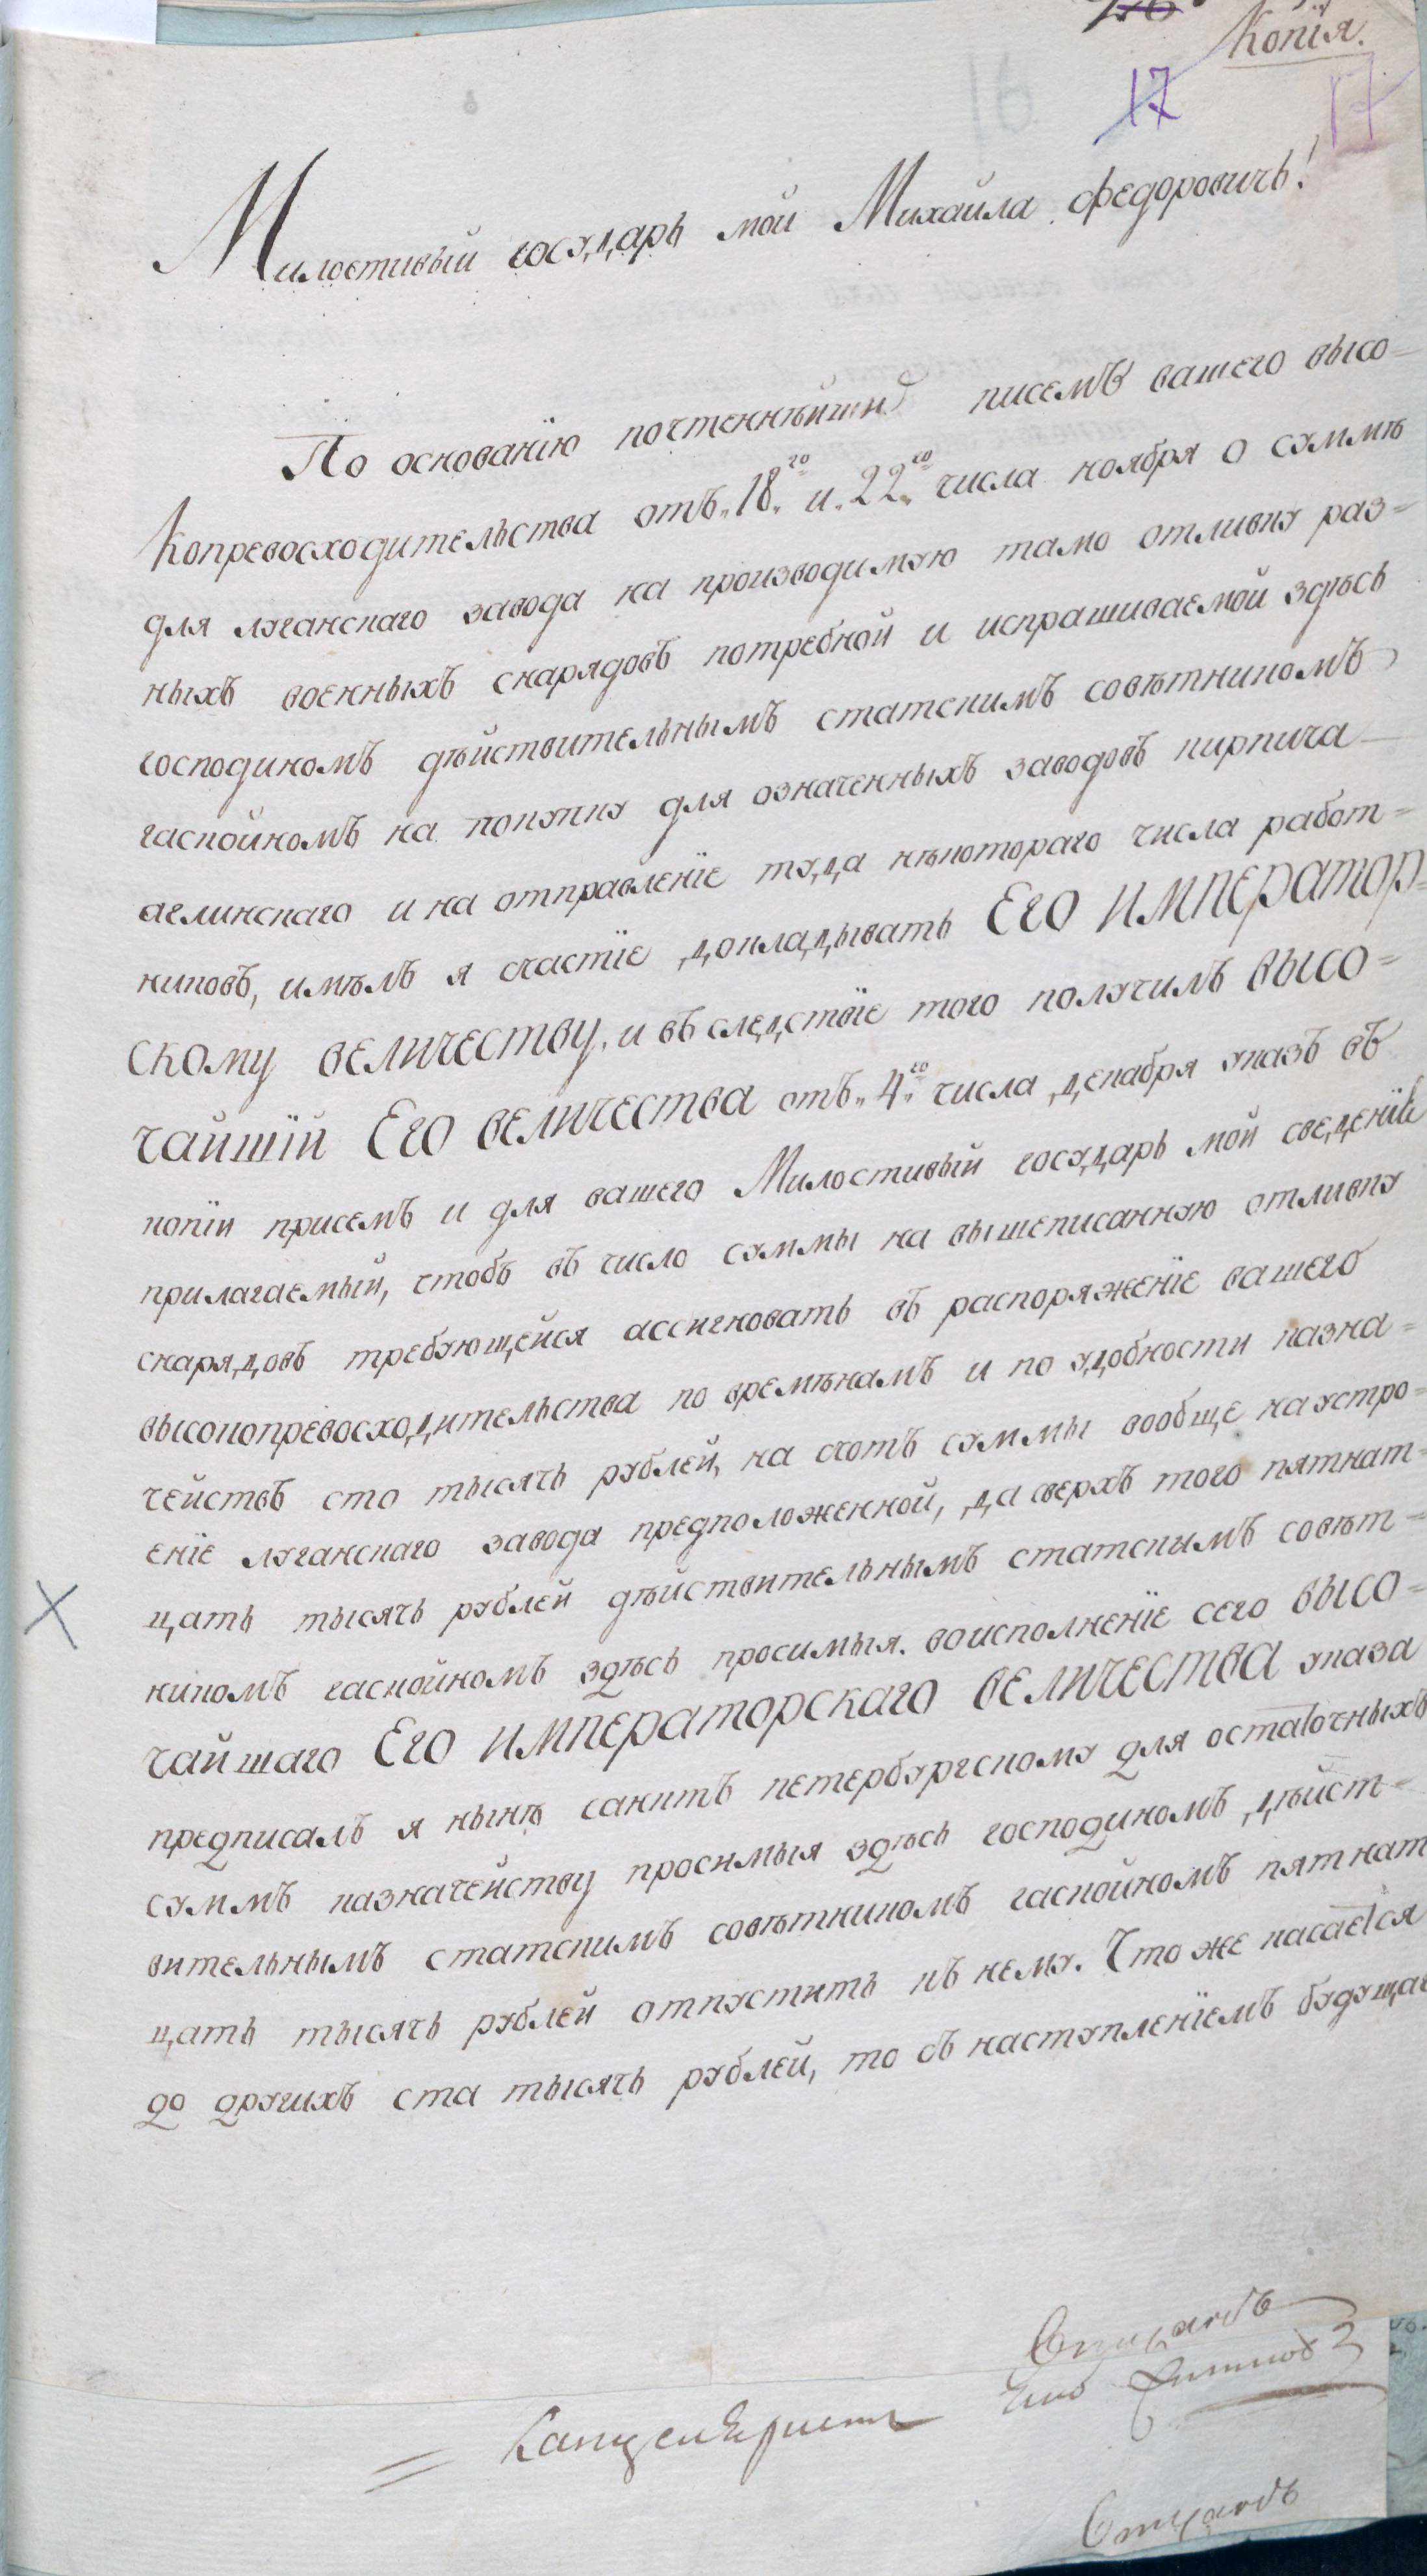 Копїя.
17 17
16
Милостивый государь мой Михайла Федоровичь!
По основанїю почтеннѣйши писемъ вашего высо=
копревосходительства отъ „18.го и „22.го числа ноября о суммѣ
для луганскаго завода на производимую тамо отливку раз=
ныхъ военныхъ снарядовъ потребной и испрашиваемой здѣсь
господиномъ дѣйствительнымъ статскимъ совѣтникомъ
гаскойномъ на покупку для означенныхъ заводовъ кирпича
аглинскаго и на отправленїе туда нѣкотораго числа работ=
никовъ, имѣлъ я счастїе докладывать Его император=
скому величеству, и въ следствїе того получилъ высо=
чайшїй Его величества отъ „4.го числа декабря указъ въ
копїи присемъ и для вашего Милостивый государь мой сведенїя
прилагаемый, чтобъ въ число суммы на вышеписанную отливку
снарядовъ требующейся ассигновать въ распоряженїе вашего
высокопревосходительства по времѣнамъ и по удобности казна=
чействъ сто тысячь рублей, на счотъ суммы вообще на устро=
енїе луганскаго завода предположенной, да сверхъ того пятнат=
цать тысячь рублей дѣйствительнымъ статскимъ совѣт=
никомъ гаскойномъ здѣсь просимыя. воисполненїе сего высо=
чайшаго Его императорскаго величества указа
предписалъ я нынѣ санктъ петербургскому для остаточныхъ
суммъ казначейству просимыя здѣсь господиномъ дѣйст=
вительнымъ статскимъ совѣтникомъ гаскойномъ пятнат
цать тысячь рублей отпустить къ нему. Что же касается
до другихъ ста тысячь рублей, то съ наступленїемъ будущаг
Канцеляристъ